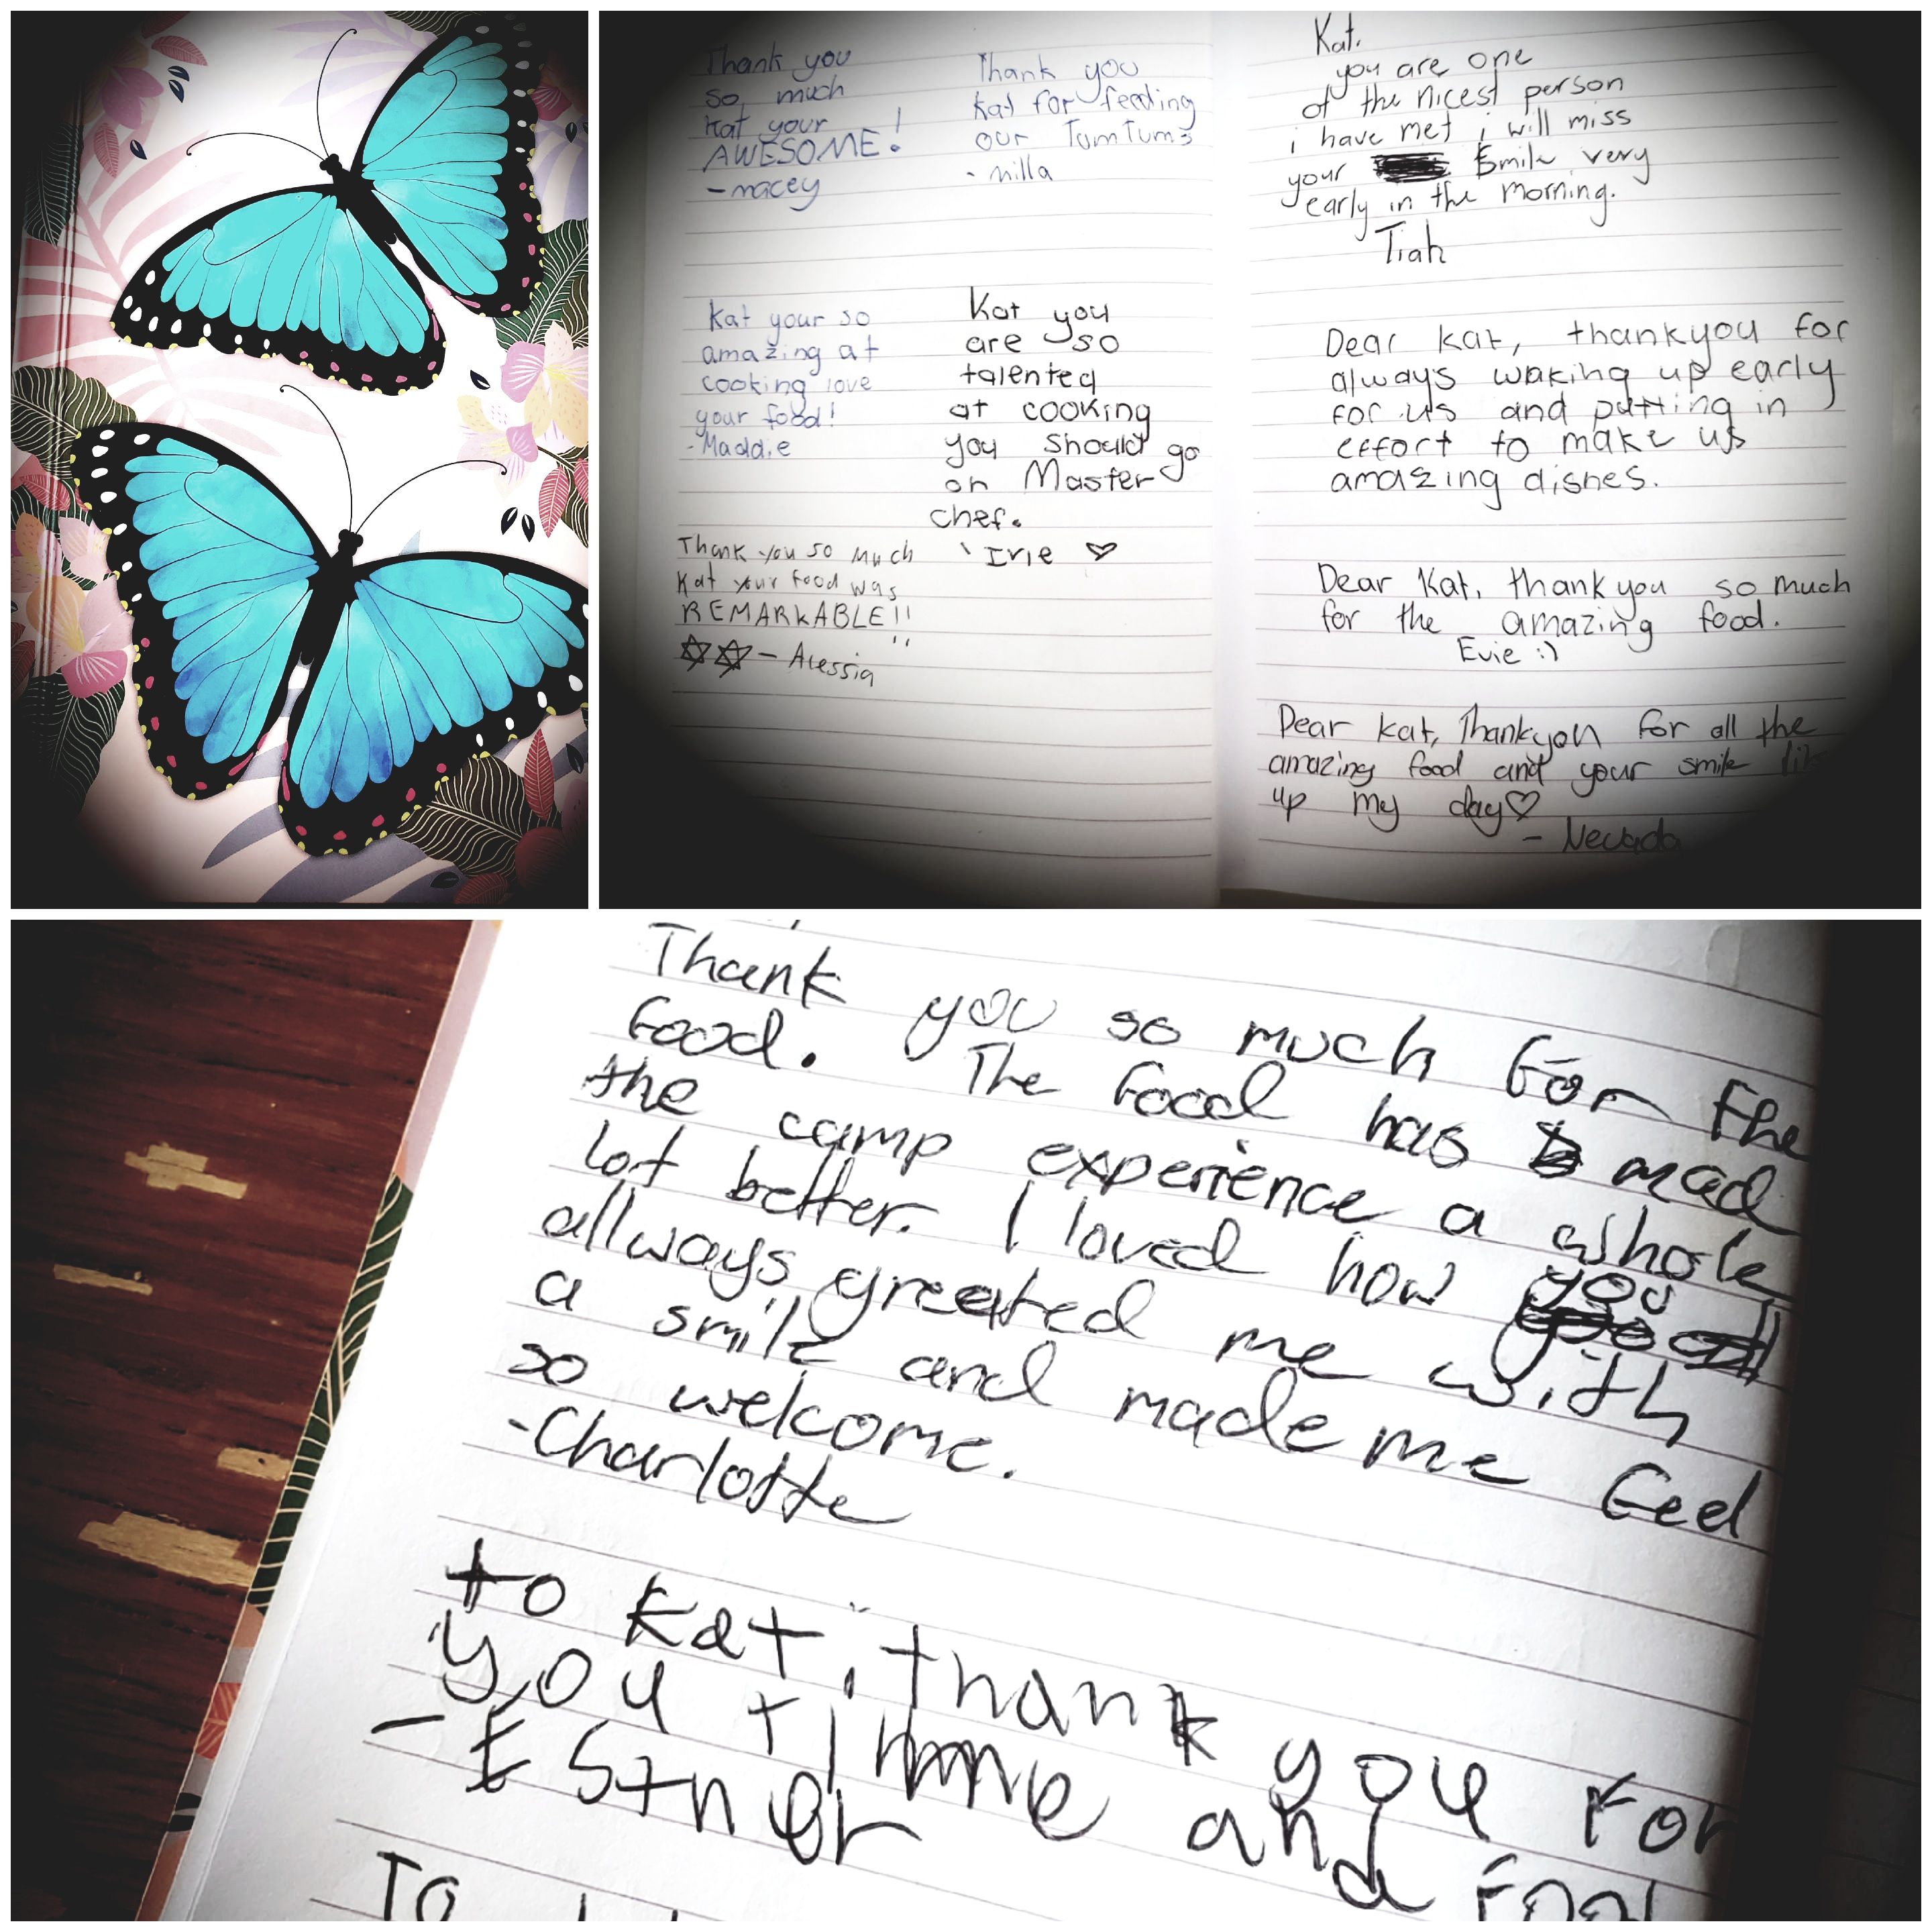 Thank you
so much
Kat your
AWESOME!
-macey
Thank you
Kat for feeding
our TumTums
- Milla
Kat your so
amazing at
cooking love
your food!
-Maddie
Kat you
are so
talented
at cooking
you should go
on Master
chef.
Irie ♡
Thank you so much
Kat your food was
REMARKABLE!!
- Alessia
Kat.
you are one
of the nicest person
i have met i will miss
your smile very
early in the morning.
Tiah
Dear Kat, thankyou for
always waking up early
for us and putting in
effort to make us
amazing dishes.
Dear Kat, thank you so much
for the amazing food.
Evie :)
Dear Kat, Thankyou for all the
amazing food and your smile
up my day♡
- Nevada
Thank you so much for the
food. The food has mad
the camp experience a whole
lot better. I loved how you
allways greeted me with
a smile and made me feel
so welcome.
-Charlotte
to Kat, thank you for
you time and
- Esther
To